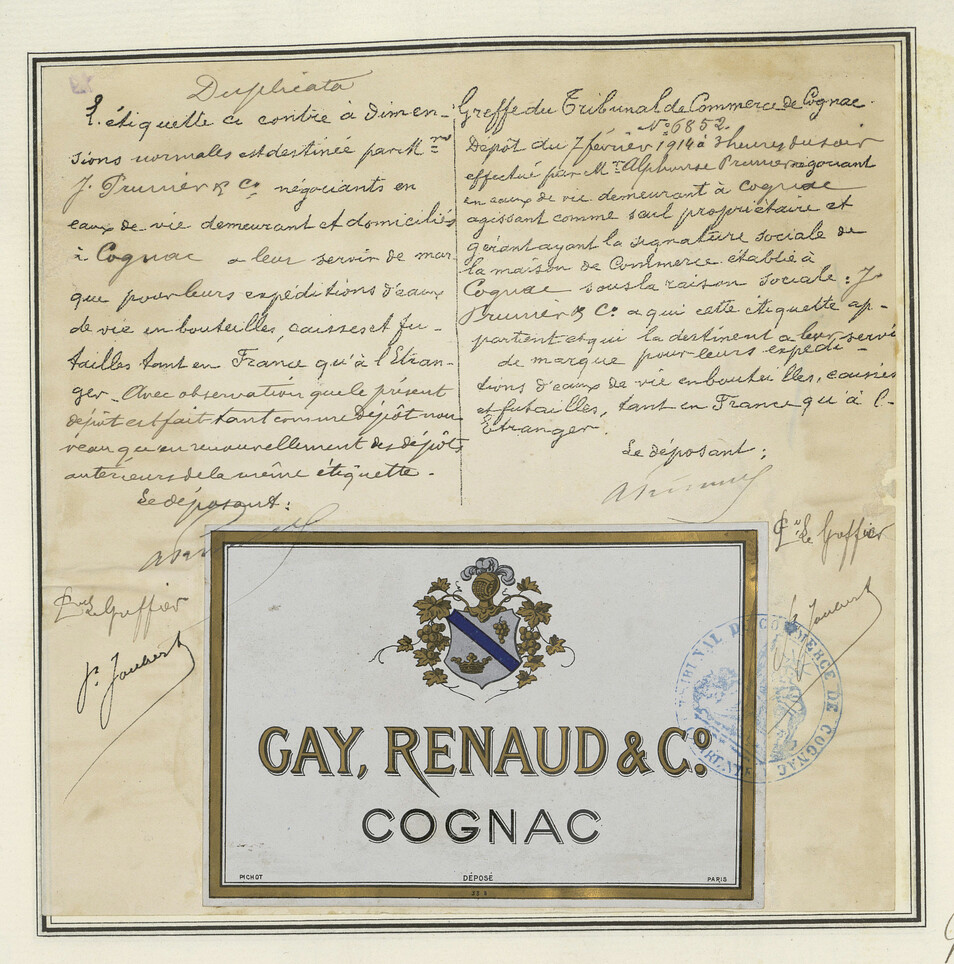 Duplicata
L'étiquette ci contre à dimen-
sions normales est destinée par M.rs
J. Prunier & Co négociants en
eaux de vie demeurant et domiciliés
à Cognac a leur servir de mar
que pour leurs expéditions d'eaux
de vie en bouteilles, caisses et fu-
tailles tant en France qu'à l'Etran-
ger. Avec observation que le présent
dépôt est fait tant comme Dépôt nou
veau qu'en renouvellement des dépôts
antérieurs de la même étiquette.
Le déposant:
Le Greffier
J. Joubert
Greffe du Tribunal de Commerce de Cognac.
No 6852.
Dépôt du 7 février 1914 à 3 heures du soir
effectué par Mr Alphonse Prunier négociant
en eaux de vie demeurant à Cognac
agissant comme seul propriétaire et
gérant ayant la signature sociale de
la maison de Commerce établie à
Cognac sous la raison sociale: J.
Prunier & Co a qui cette étiquette ap-
partient et qui la destinent a leur servi
de marque pour leurs expédi-
tions d'eaux de vie en bouteilles, caisses
et futailles, tant en France qu'à l'-
Etranger.
Le déposant:
Le Greffier
Joubert
GAY, RENAUD & Co
COGNAC
PICHOT DÉPOSÉ PARIS
TRIBUNAL DE COMMERCE DE COGNAC